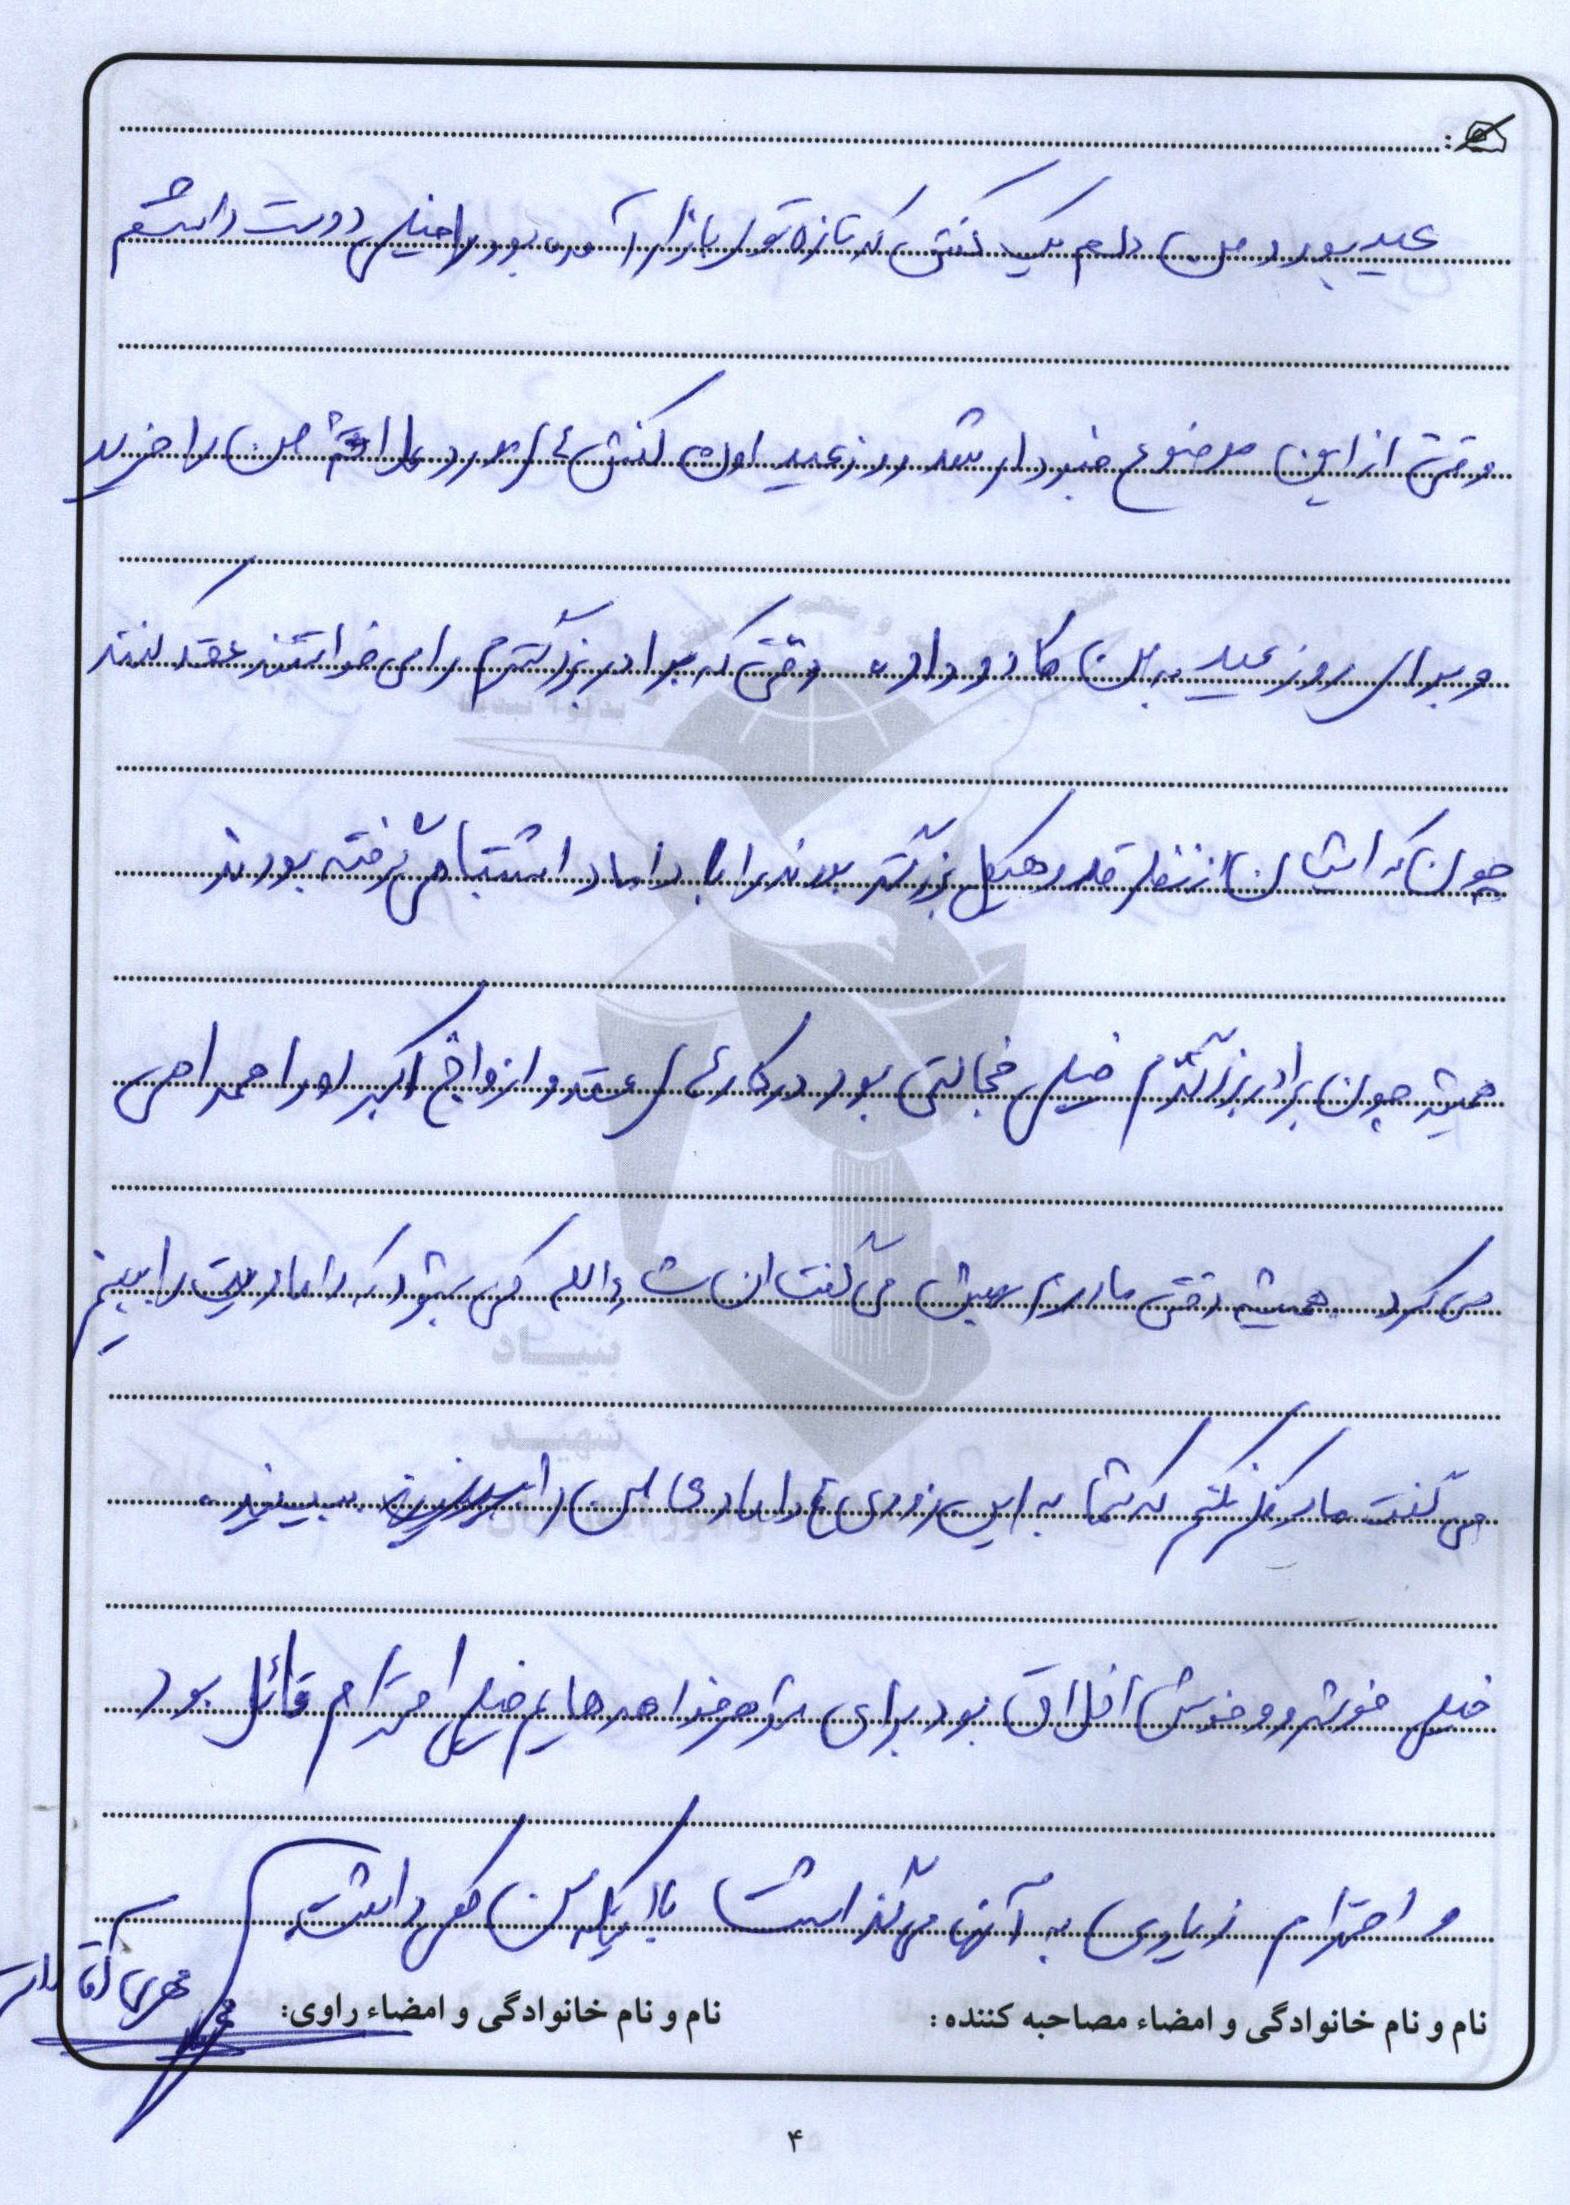 عید بود و من دلم یک کفش که تازه توی بازار آمده بود را خیلی دوست داشتم
وقتی از این موضوع خبردار شد روز عید اون کفش های مورد علاقه من را خرید
و برای روز عید به من کادو داد. وقتی که برادر بزرگترم را می خواستند عقد کنند
چون که ایشان از نظر قد و هیکل بزرگتر بودند را با داماد اشتباهی گرفته بودند
همیشه چون برادر بزرگترم خیلی خجالتی بود در کارهای عقد و ازواج اکبر او را همراهی
می کرد. همیشه وقتی مادرم بهش می گفت ان شاءالله کی بشود که دامادیت را ببینم
می گفت مادر فکر نکنم که شما به این زودی ها دامادی من را ببینید.
خیلی خوشرو و خوش اخلاق بود برای شوهر خواهرهایم خیلی احترام قائل بود
و احترام زیادی به آنها می گذاشت با اینکه سن کمی داشت.
نام و نام خانوادگی و امضاء مصاحبه کننده :
نام و نام خانوادگی و امضاء راوی:
بنیاد
شهید
۴